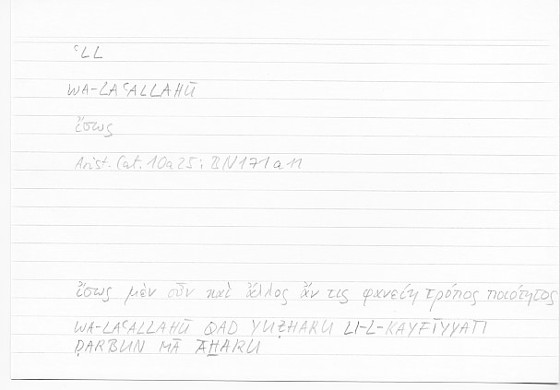 ʿLL
WA-LAʿALLAHŪ
ἴσως
Arist. Cat. 10a25; BN171a11
ἴσως μὲν οὖν καὶ ἄλλος ἄν τις φανείη τρόπος ποιότητος
WA-LAʿALLAHŪ QAD YUẒHARU LI-L-KAYFĪYYATI
ḌARBUN MĀ ĀH̱ARU